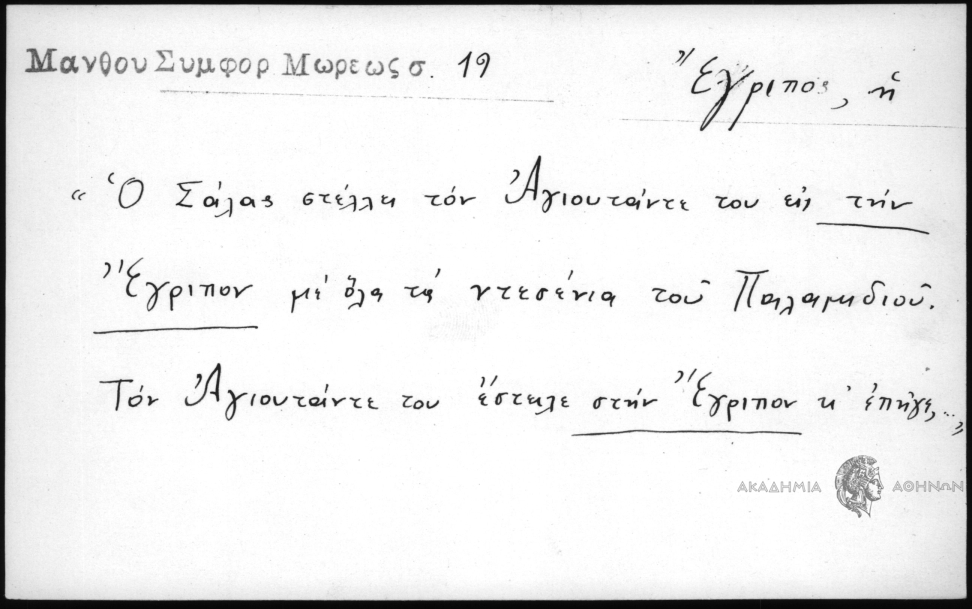 Μανθου Συμφορ Μωρεως σ. 19
Ἔγριπος, ἡ
“ Ὁ Σάλας στέλλει τόν Ἀγιουτάντε του εἰς τήν
Ἔγριπον μέ ὅλα τά ντεσένια τοῦ Παλαμηδιοῦ.
Τόν Ἀγιουτάντε του ἔστειλε στήν Ἔγριπον κ' ἐπῆγε, ...”
ΑΚΑΔΗΜΙΑ ΑΘΗΝΩΝ